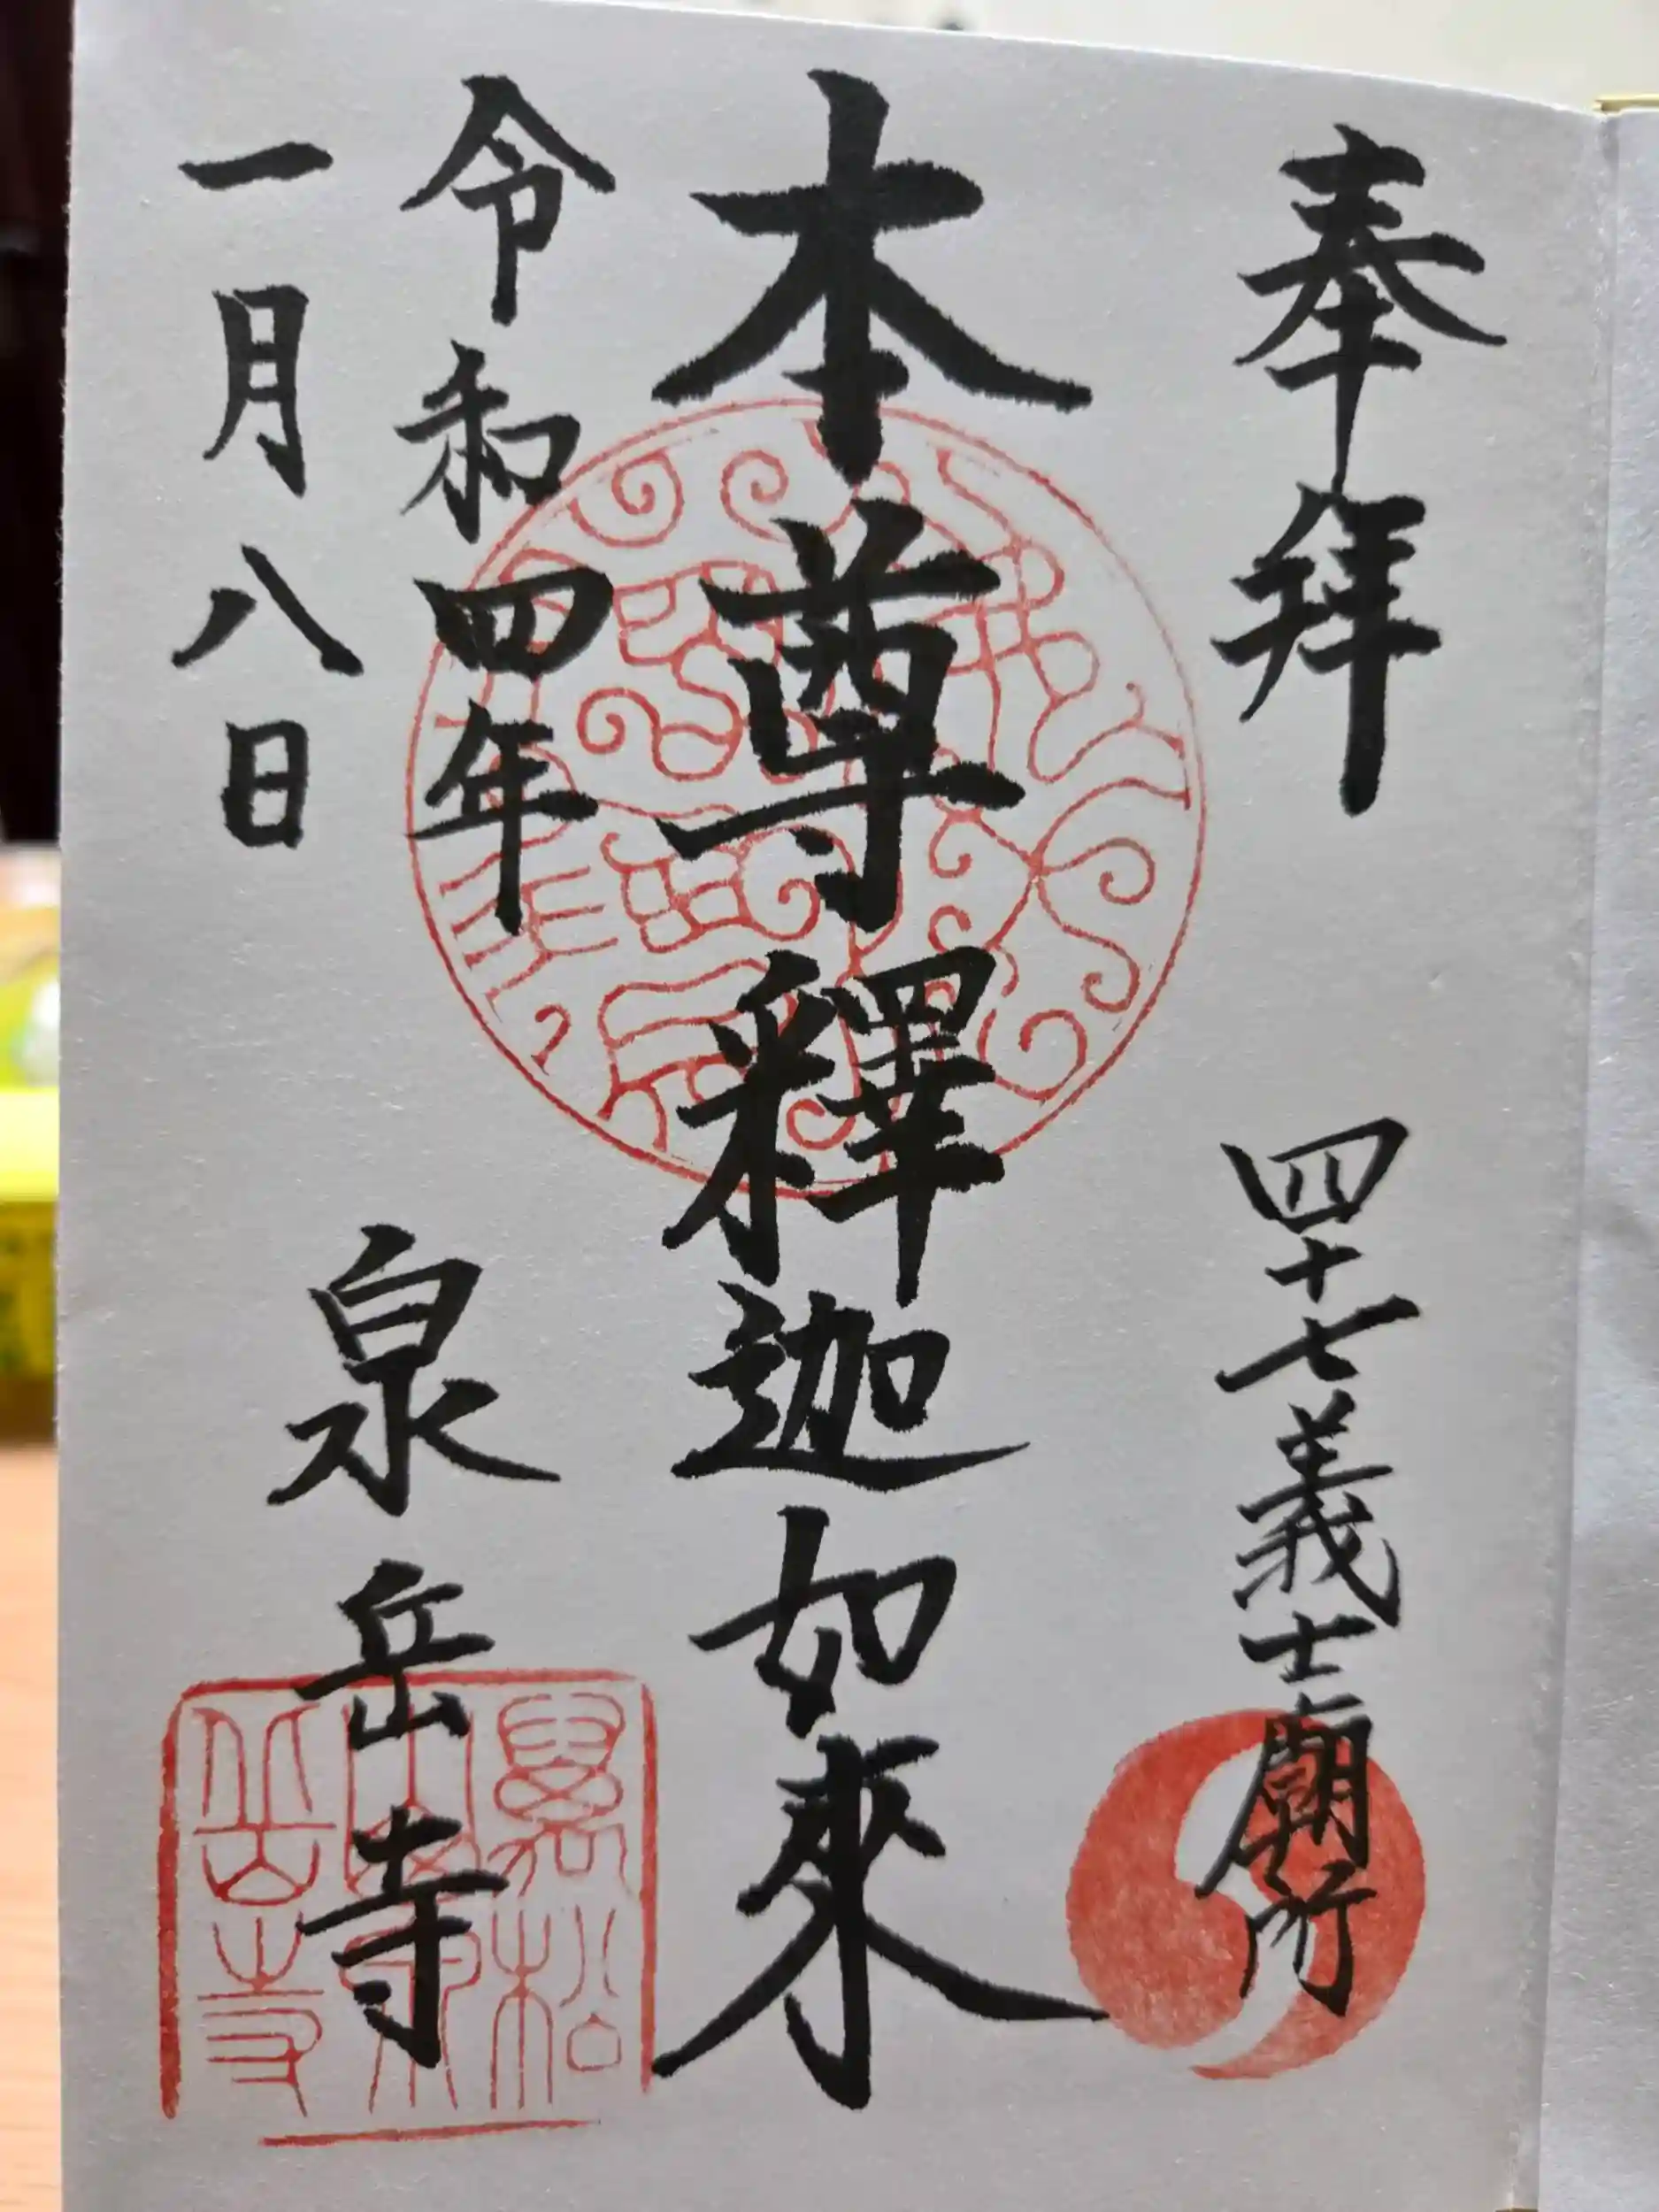 奉拝
四十七義士廟所
本尊釋迦如來
令和四年
一月八日
泉岳寺
萬松山泉岳寺